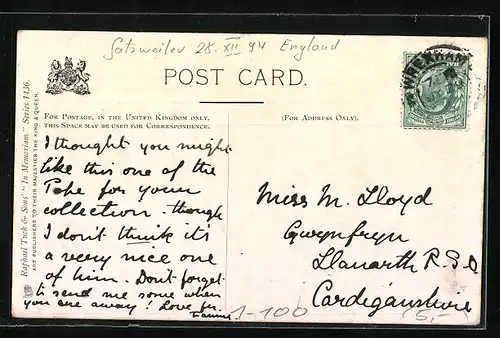 Satsweiler 28. XII 94 England
POST CARD.
WREXHAM
FOR POSTAGE, IN THE UNITED KINGDOM ONLY,
THIS SPACE MAY BE USED FOR CORRESPONDENCE.
(FOR ADDRESS ONLY).
Raphael Tuck & Sons' "In Memoriam" Series 1436.
ART PUBLISHERS TO THEIR MAJESTIES THE KING & QUEEN.
I thought you might
like this one of the
Pope for your
collection - though
I don't think it's
a very nice one
of him. Don't forget
to send me some when
you are away! Love fr.
Fannie.
Miss M. Lloyd
Gwynfryn
Llanarth R.S.O
Cardiganshire
1-100
5,-